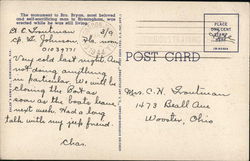 The monument to Bro. Bryan, most beloved
and self-sacrificing man in Birmingham, was
erected while he was still living.
C. C. Troutman 3/9
Cp. L. Johnson, No. Car.
01039771
PLACE
ONE CENT
STAMP
HERE
POST CARD
Very cold last night. Am
not doing anything
in particular. We will be
closing the Post as
soon as the boats leave
next week. Had a long
talk with my jeep friend.
Chas.
Mrs. C. H. Troutman
1473 Beall Ave
Wooster, Ohio